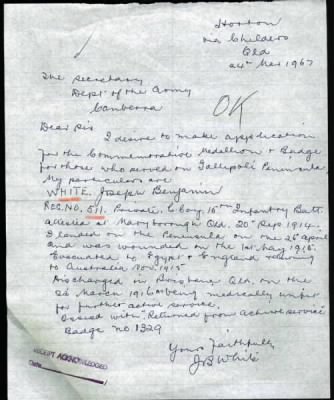 Horton
via Childers
Qld
24th Mar 1967
The Secretary
Dept of the Army
Canberra
OK
Dear Sir
I desire to make application
for the Commemorative Medallion & Badge
for those who served on Gallipoli Peninsula
My particulars are
WHITE. Joseph Benjamin
REG. NO. 511. Private C Coy. 15th Infantry Batt.
attested at Maryborough Qld. 20th Sep 1914.
I landed on the Peninsula on the 25 April
and was wounded on the 1st May 1915.
Evacuated to Egypt & England returning
to Australia Nov. 1915
Discharged in Brisbane Qld. on the
March 1916 being medically unfit
for further active service.
Issued with "Returned from active service"
Badge no 1329
Yours faithfully
JB White
RECEIPT ACKNOWLEDGED
Date